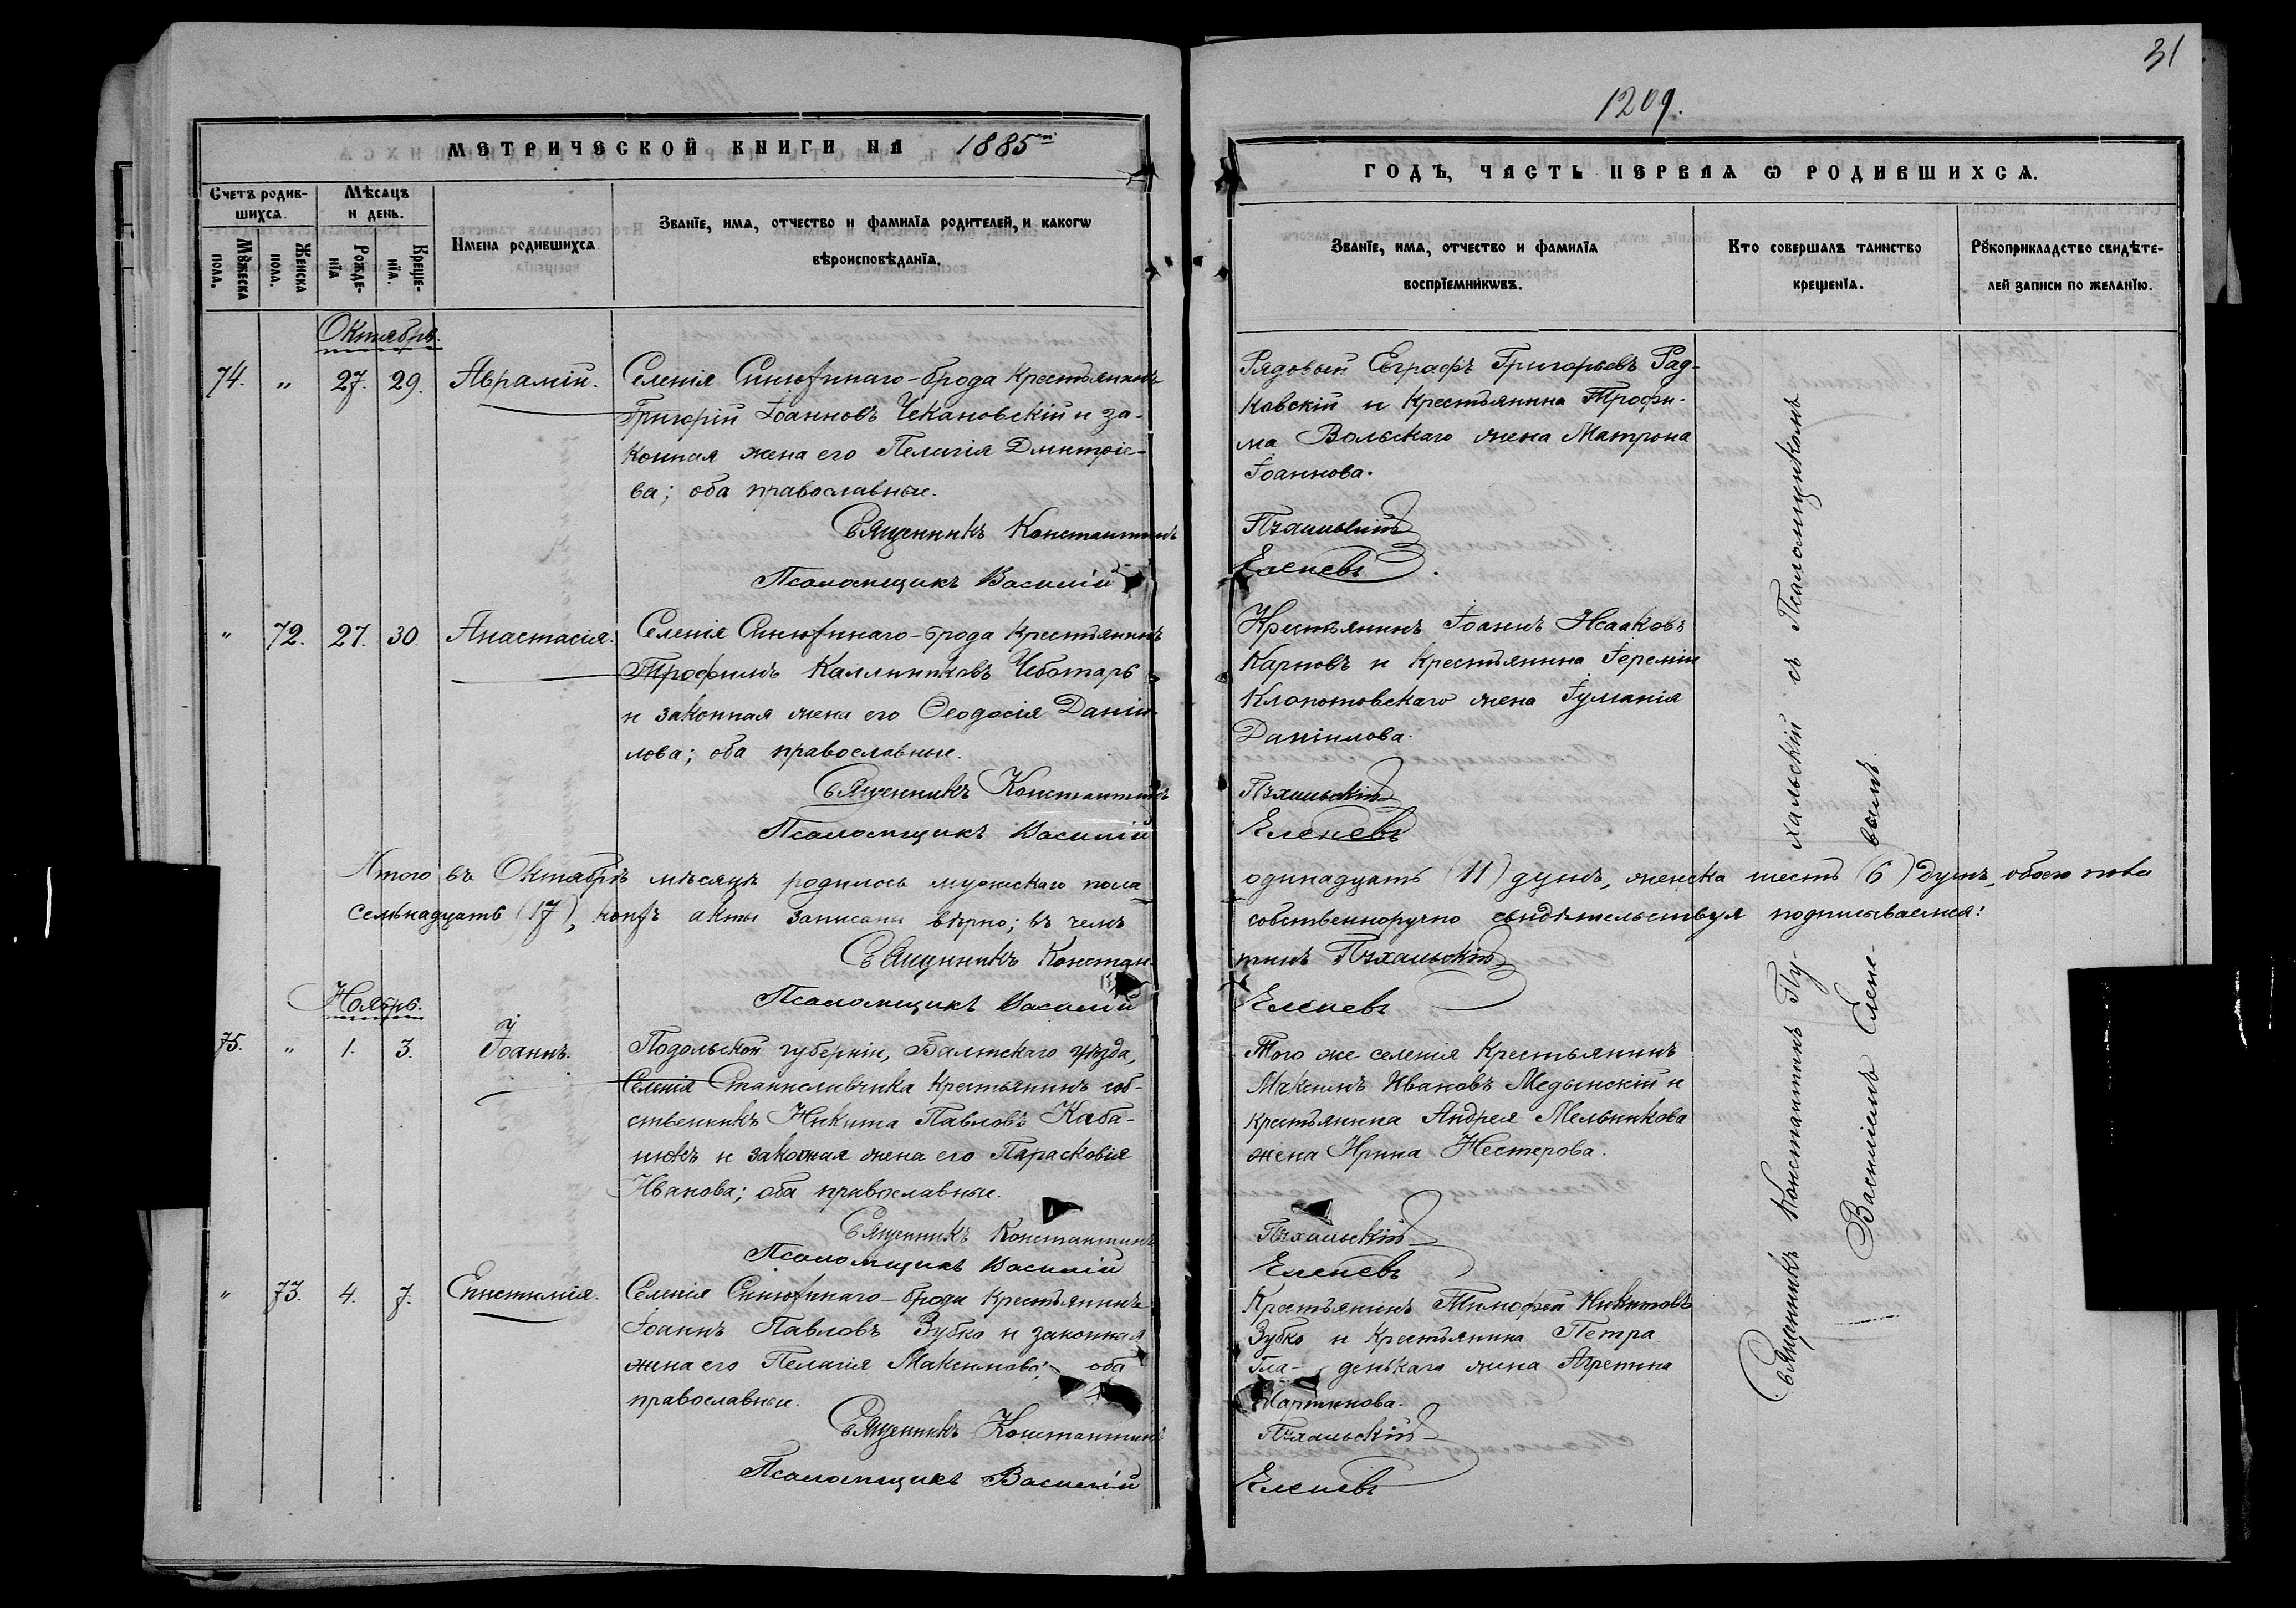 31
1209.
МЕТРИЧЕСКОЙ КНИГИ НА 1885й
ГОДЪ, ЧАСТЬ ПЕРВАЯ Ѡ РОДИВШИХСѦ.
Счетъ родив-
шихсѧ.
Мѣсѧцъ
и день.
Мꙋжеска
пола.
Женска
пола.
Рожде-
нїѧ
Креще-
нїѧ.
Имена родившихсѧ
Званїе, имѧ, отчество и фамилїѧ родителей, и какогѡ
вѣроисповѣданїѧ.
Званїе, имѧ, отчество и фамилїѧ
воспрїемникѡвъ.
Кто совершалъ таинство
крещенїѧ.
Рꙋкоприкладство свидѣте-
лей записи по желанїю.
Октябрь.
74. „ 27. 29. Авраміи. Селенія Синюхинаго-брода Крестьянинъ
Григорій Іоанновъ Чекановскій и за-
конная жена его Пелагія Дмитріе-
ва; оба православные.
Священникъ Константинъ
Псаломщикъ Василій
Рядовый Евграфъ Григорьевъ Рад-
ковскій и крестьянина Трофи-
ма Вольскаго жена Матрона
Іоаннова.
Пухальскій
Еленевъ
„ 72. 27. 30. Анастасія. Селенія Синюхинаго-брода крестьянинъ
Трофимъ Каллиниковъ Чеботарь
и законная жена его Ѳеодосія Даніи-
лова; оба православные.
Священникъ Константинъ
Псаломщикъ Василій
Крестьянинъ Іоаннъ Исааковъ
Карповъ и крестьянина Іереміи
Клопотовскаго жена Іуліанія
Даніилова.
Пухальскій
Еленевъ
Итого въ Октябрѣ мѣсяцѣ родилось мужескаго пола одинадцать (11) душъ, женска шесть (6) душъ, обоего пола
семьнадцать (17), коихъ акты записаны вѣрно; въ чемъ собственноручно свидѣтельствуя подписываемся:
Священникъ Констан- тинъ Пухальскій
Псаломщикъ Василій Еленевъ
Ноябрь.
75. „ 1. 3. Іоаннъ. Подольской губерніи, Балтскаго уѣзда,
Селенія Станиславчика крестьянинъ соб-
ственникъ Никита Павловъ Каба-
нюкъ и законная жена его Парасковія
Иванова; оба православные.
Священникъ Константинъ
Псаломщикъ Василій
Того же селенія крестьянинъ
Максимъ Ивановъ Медынскій и
крестьянина Андрея Мельникова
жена Ирина Нестерова.
Пухальскій
Еленевъ
„ 73. 4. 7. Епистимія. Селенія Синюхинаго-брода крестьянинъ
Іоаннъ Павловъ Зубко и законная
жена его Пелагія Максимова; оба
православные.
Священникъ Константинъ
Псаломщикъ Василій
Крестьянинъ Тимофей Никитовъ
Зубко и крестьянина Петра
Гла- денькаго жена Агрепина
Мартинова.
Пухальскій
Еленевъ
Священникъ Константинъ Пу- хальскій съ Псаломщикомъ
Василіемъ Елене- вымъ.